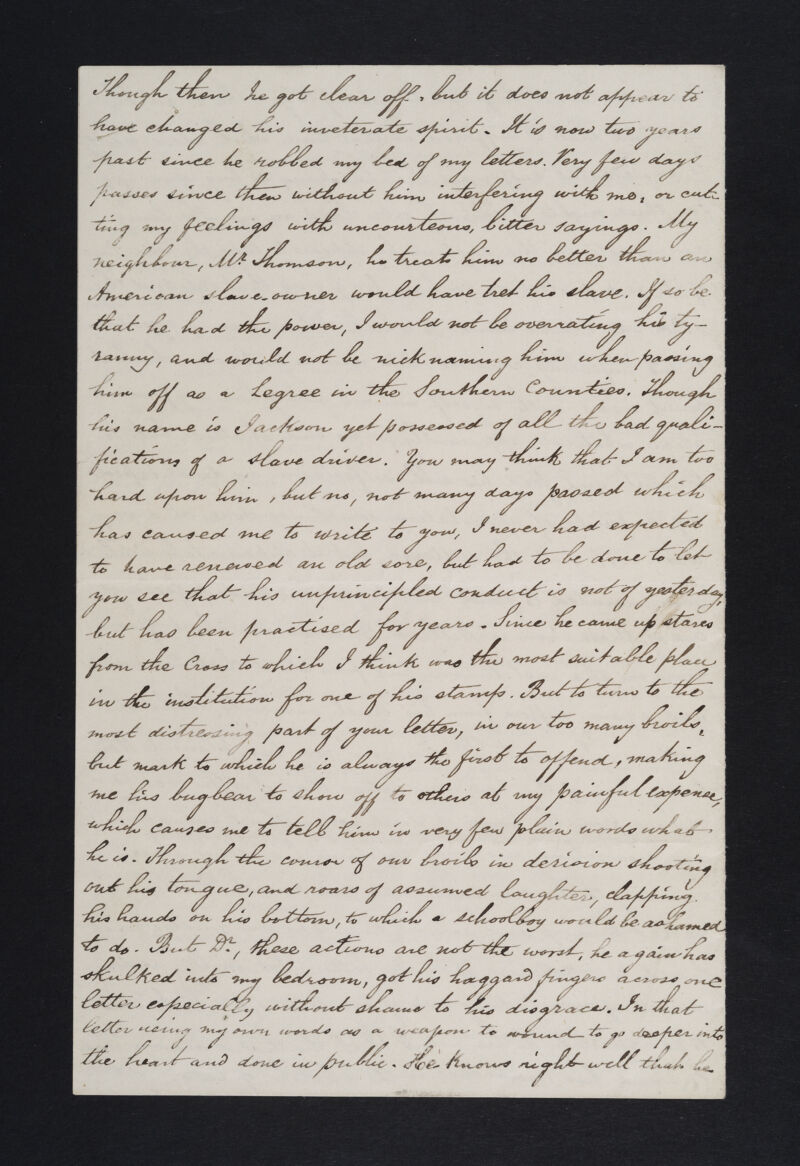 Though then he got clear off, but it does not appear to
have changed his inveterate spirit. It is now two years
past since he robbed my bed of my letters. Very few days
passes since then without him interfering with me, or cut-
ting my feelings with uncourteous, bitter sayings. My
neighbour, Mr. Thomson, he treats him no better than an
American slave-owner would have tret his slave. If so be
that he had the power, I would not be overrating his ty-
ranny, and would not be nicknaming him when passing
him off as a Legree in the Southern Counties. Though
his name is Jackson yet possessed of all the bad quali-
fications of a slave driver. You may think that I am too
hard upon him, but no, not many days passed which
has caused me to write to you, I never had expected
to have renewed an old sore, but had to be done to let
you see that his unprincipled conduct is not of yesterday,
but has been practised for years. Since he came up stares
from the Cross to which I think was the most suitable place
in the institution for one of his stamp. But to turn to the
most distressing part of your letter, in our too many broils,
but mark to which he is always the first to offend, making
me his bugbear to show off to others at my painful expense,
which causes me to tell him in very few plain words what
he is. Through the course of our broils in derision shooting
out his tongue, and roars of assumed laughter, clapping
his hands on his bottom, to which a schoolboy would be ashamed
to do. But Dr., these actions are not the worst, he again has
skulked into my bedroom, got his haggard fingers across one
letter especially without shame to his disgrace. In that
letter using my own words as a weapon to wound to go deeper into
the heart and done in public. He knows right well that he